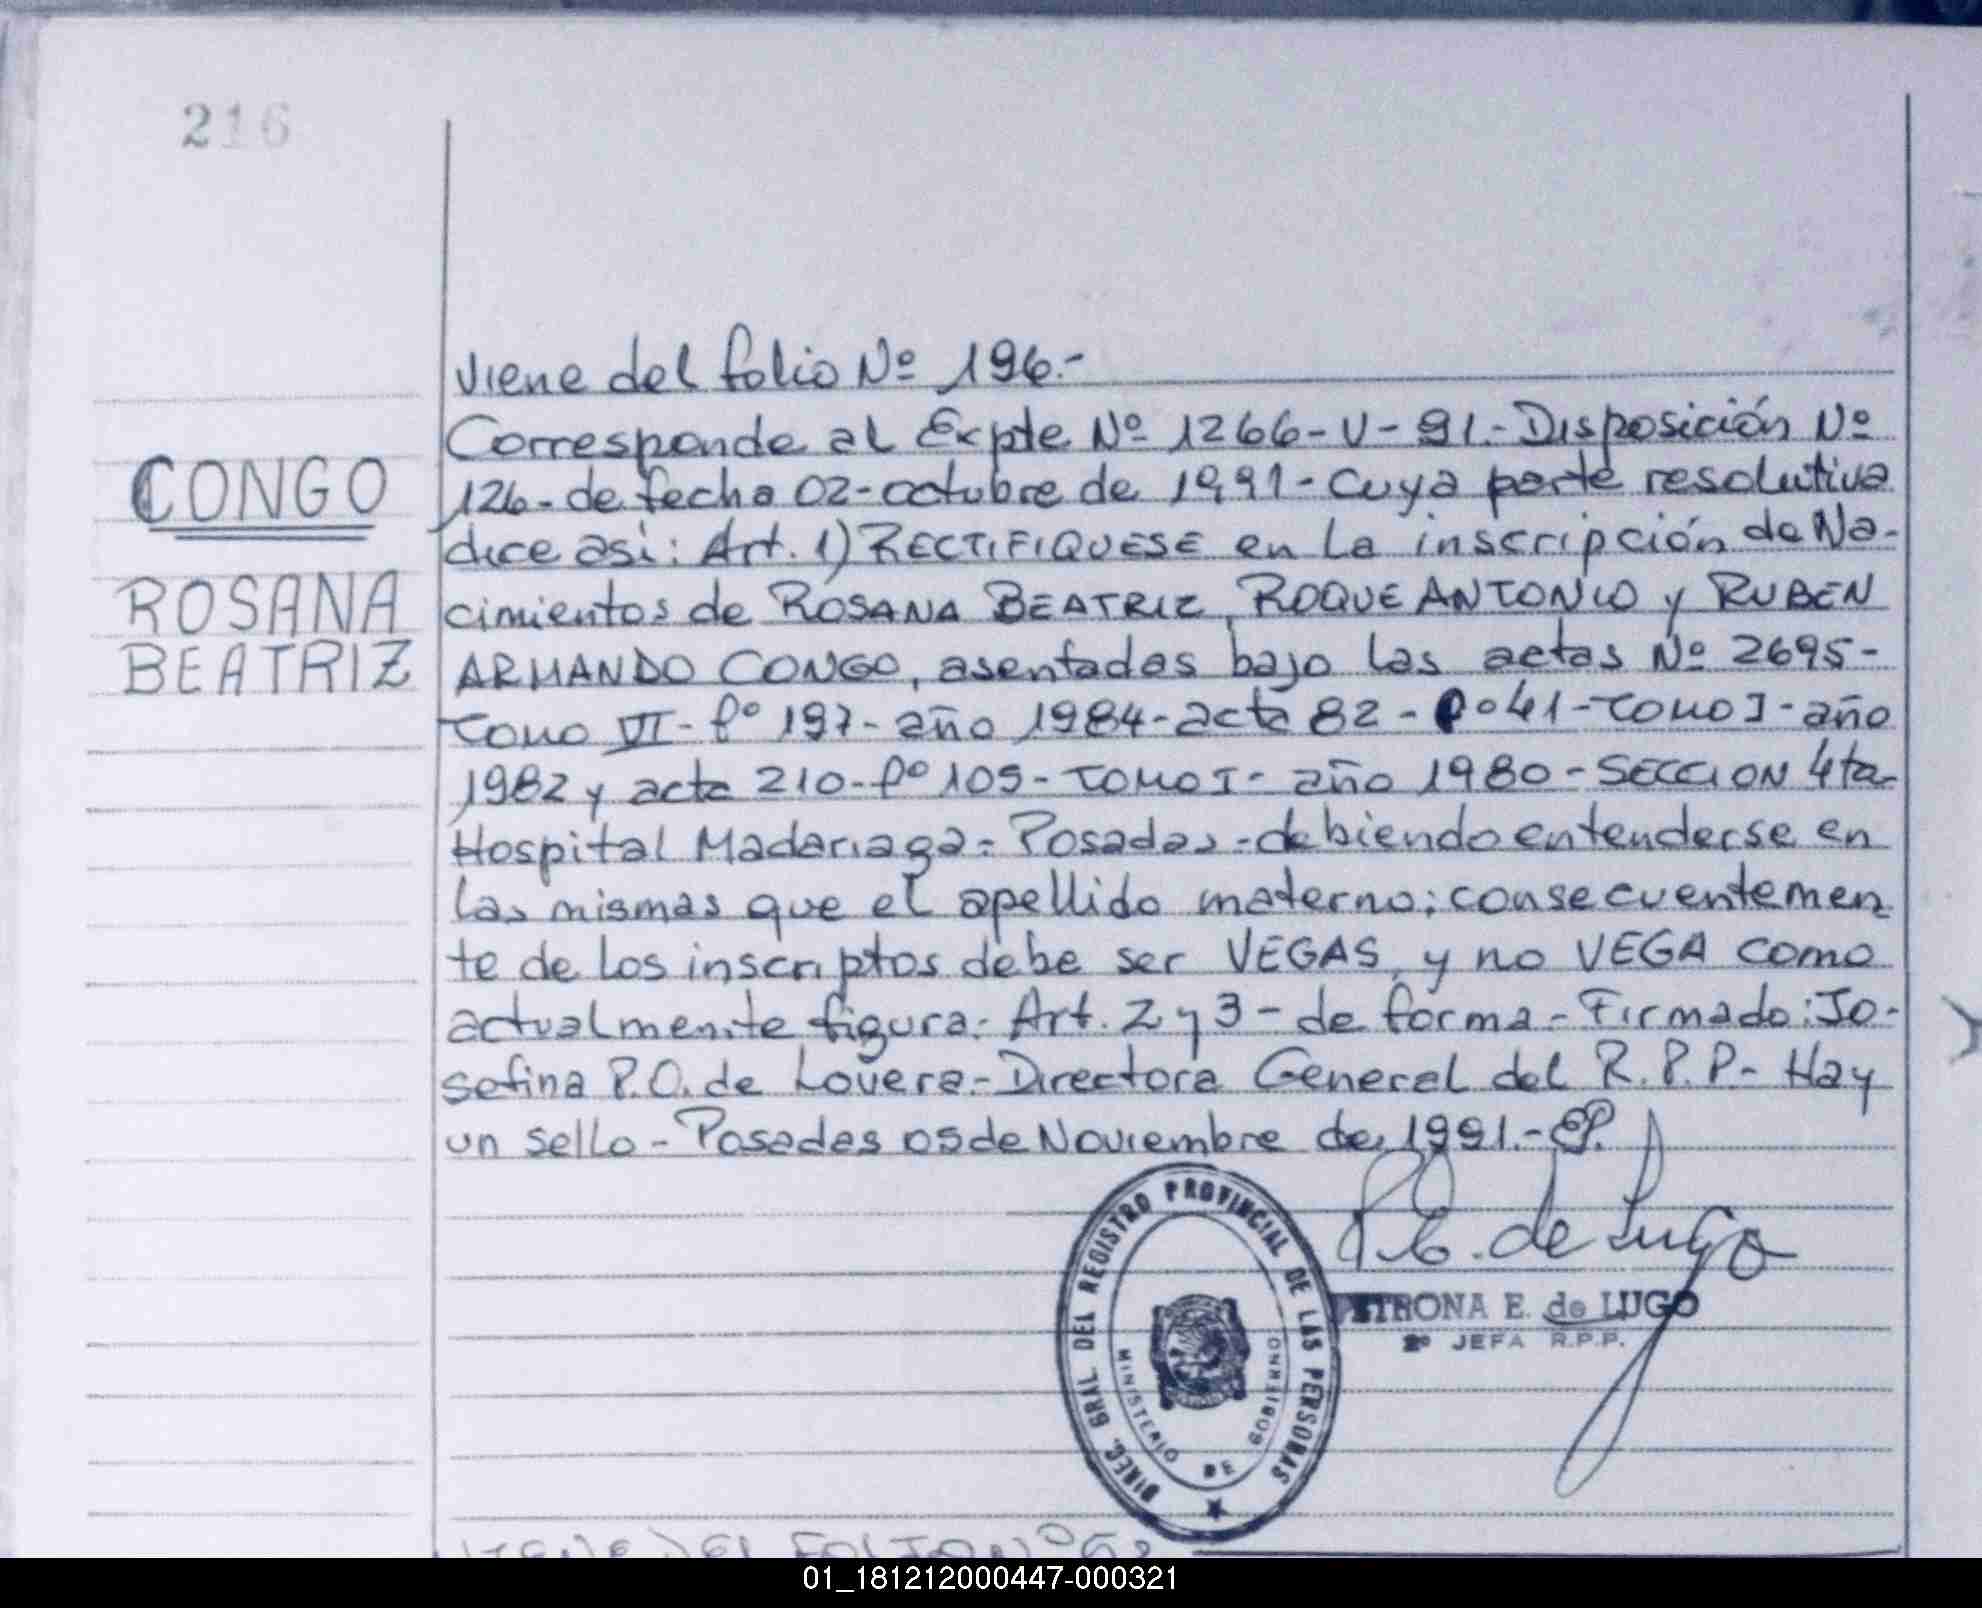 216
CONGO
ROSANA
BEATRIZ
Viene del folio Nº 196.-
Corresponde al Expte Nº 1266-V-91.-Disposición Nº
126-de fecha 02-octubre de 1991-cuya parte resolutiva
dice asi: Art. 1) RECTIFIQUESE en la inscripción de Na-
cimientos de ROSANA BEATRIZ, ROQUE ANTONIO y RUBEN
ARMANDO CONGO, asentadas bajo las actas Nº 2695-
Tomo VI-fº 197-año 1984-acta 82-fº41-TOMO I-año
1982 y acta 210-fº 105-TOMO I-año 1980-SECCION 4ta-
Hospital Madariaga-Posadas-debiendo entenderse en
las mismas que el apellido materno; consecuentemen
te de los inscriptos debe ser VEGAS, y no VEGA como
actualmente figura.-Art. 2 y 3-de forma-Firmado: Jo-
sefina P.O. de Lovera-Directora General del R.P.P.- Hay
un sello-Posadas 05 de Noviembre de 1991.-EP.
P.E. de Lugo
PETRONA E. de LUGO
2º JEFA R.P.P.
DIREC. GRAL DEL REGISTRO PROVINCIAL DE LAS PERSONAS
MINISTERIO DE GOBIERNO
VIENE DEL FOLIO Nº
01_181212000447-000321